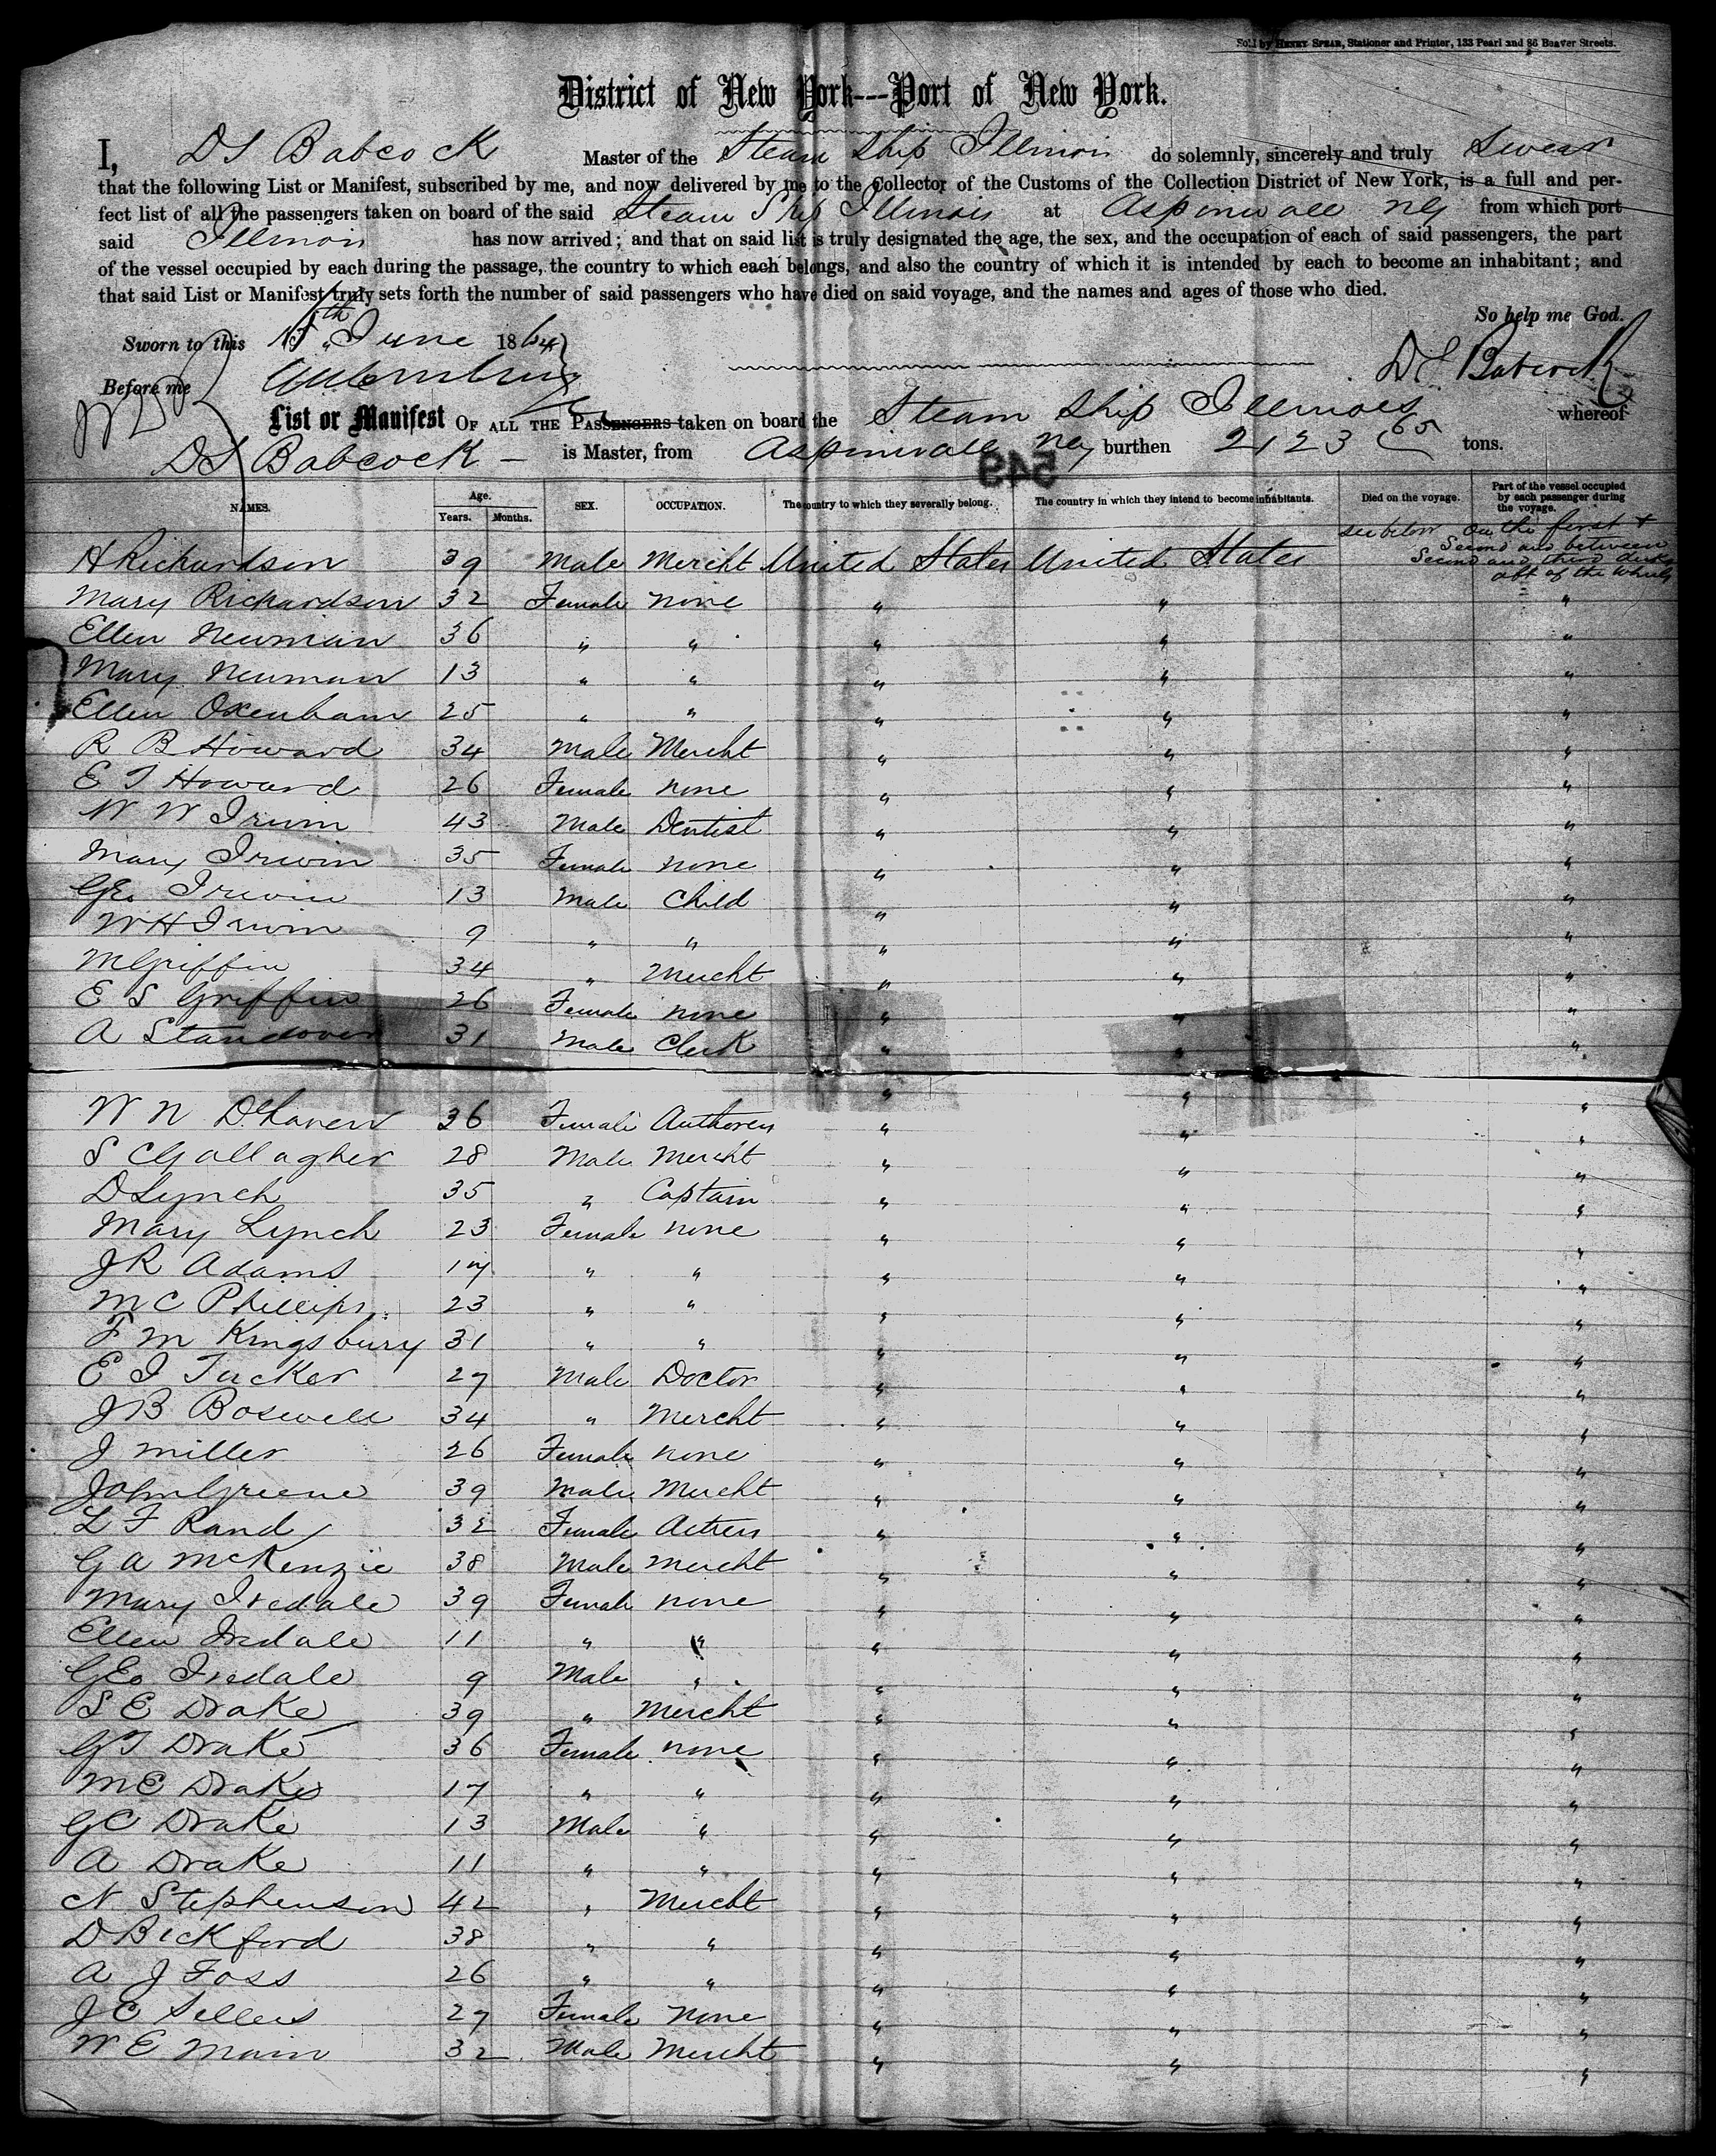 Sold by Henry Spear, Stationer and Printer, 133 Pearl and 86 Beaver Streets.
District of New York---Port of New York.
I, D S Babcock Master of the Steam Ship Illinois do solemnly, sincerely and truly Swear
that the following List or Manifest, subscribed by me, and now delivered by me to the Collector of the Customs of the Collection District of New York, is a full and per-
fect list of all the passengers taken on board of the said Steam Ship Illinois at Aspinwall NG from which port
said Illinois has now arrived; and that on said list is truly designated the age, the sex, and the occupation of each of said passengers, the part
of the vessel occupied by each during the passage, the country to which each belongs, and also the country of which it is intended by each to become an inhabitant; and
that said List or Manifest truly sets forth the number of said passengers who have died on said voyage, and the names and ages of those who died.
So help me God.
Sworn to this 15th June 1864
D S Babcock
Before me
List or Manifest OF ALL THE PASSENGERS taken on board the Steam Ship Illinois whereof
D S Babcock - is Master, from Aspinwall NG burthen 2123 65 tons.
549
NAMES. Age. Years. Months. SEX. OCCUPATION. The country to which they severally belong. The country in which they intend to become inhabitants. Died on the voyage. Part of the vessel occupied by each passenger during the voyage.
see below On the first + Second and between Second and third decks aft of the Wheels
H Richardson 39 Male Mercht United States United States
Mary Richardson 32 Female None " " "
Ellen Newman 36 " " " " "
Mary Newman 13 " " " " "
Ellen Oxenham 25 " " " " "
R B Howard 34 Male Mercht " " "
E T Howard 26 Female None " " "
W W Irwin 43 Male Dentist " " "
Mary Irwin 35 Female None " " "
Geo Irwin 13 Male Child " " "
W H Irwin 9 " " " " "
M Griffin 34 " Mercht " " "
E S Griffin 26 Female None " " "
A Standover 31 Male Clerk " " "
" " "
W N DeHaven 36 Female Authoress " " "
S C Gallagher 28 Male Mercht " " "
D Lynch 35 " Captain " " "
Mary Lynch 23 Female None " " "
J R Adams 17 " " " " "
M C Phillips 23 " " " " "
F M Kingsbury 31 " " " " "
E I Tucker 27 Male Doctor " " "
J B Boswell 34 " Mercht " " "
J Miller 26 Female None " " "
John Greene 39 Male Mercht " " "
L F Rand 32 Female Actress " " "
G A McKenzie 38 Male Mercht " " "
Mary Iredale 39 Female None " " "
Ellen Iredale 11 " " " " "
Geo Iredale 9 Male " " " "
S E Drake 39 " Mercht " " "
G T Drake 36 Female None " " "
M E Drake 17 " " " " "
G C Drake 13 Male " " " "
A Drake 11 " " " " "
N Stephenson 42 " Mercht " " "
D Bickford 38 " " " " "
A J Foss 26 " " " " "
J C Sellers 27 Female None " " "
W E Main 32 Male Mercht " " "